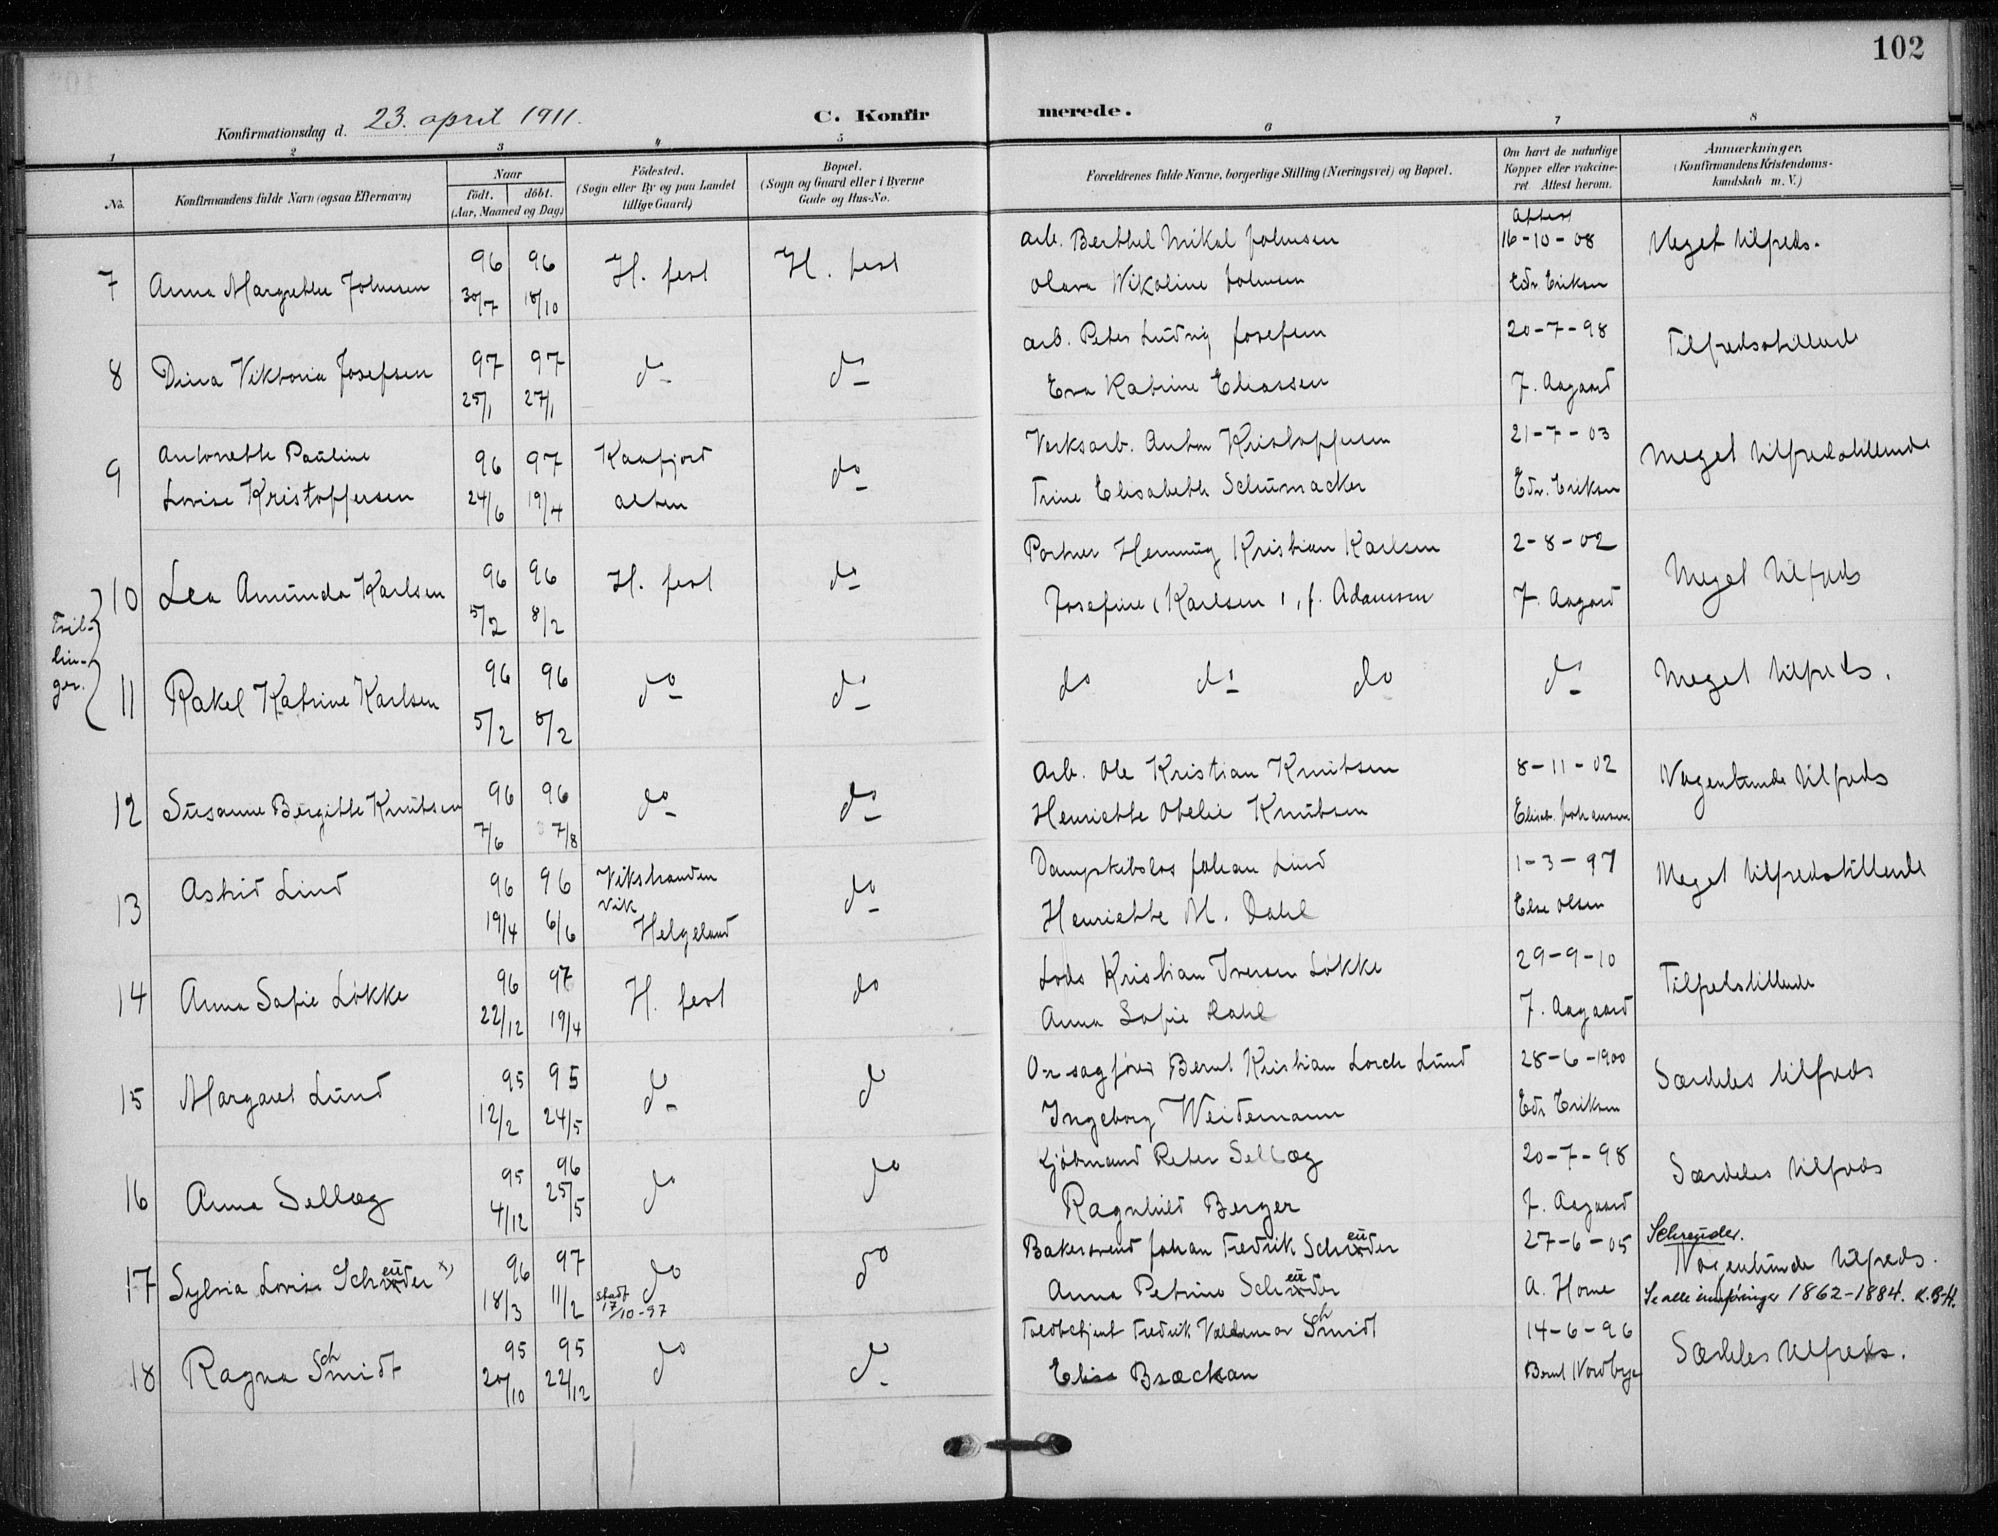 102
Konfirmationsdag d. 23. april 1911.
C. Konfirmerede.
1 2 3 4 5 6 7 8
No.
Konfirmandens fulde Navn (ogsaa Efternavn)
Naar
födt. döbt.
(Aar, Maaned og Dag)
Födested.
(Sogn eller By og paa Landet
tillige Gaard)
Bopæl.
(Sogn og Gaard eller i Byerne
Gade og Hus-No.
Forældrenes fulde Navne, borgerlige Stilling (Næringsvei) og Bopæl.
Om havt de naturlige
Kopper eller vakcine-
ret Attest herom.
Anmærkninger.
(Konfirmandens Kristendoms-
kundskab m. V.)
7 Anna Margrethe Johnsen 96 30/7 96 18/10 H. fest H. fest
arb. Berthel Mikal Johnsen
Olava Nikoline Johnsen
Attest
16-10-08
Edv. Eriksen
Meget tilfreds.
8 Dina Viktoria Josefsen 97 25/1 97 27/1 do do
arb. Peter Ludvig Josefsen
Eva Katrine Eliassen
20-7-98
F. Aagaard
Tilfredsstillende
9 Antonette Pauline
Lovise Kristoffersen 96 24/6 97 19/4 Kaafjord
Alten do
Verksarb. Anton Kristoffersen
Trine Elisabeth Schumacker
21-7-03
Edv. Eriksen
Meget tilfredsstillende
Tril-
lin-
ger.
10 Lea Amunda Karlsen 96 5/2 96 8/2 H. fest do
Portner Henning Kristian Karlsen
Josefine (Karlsen), f. Adamsen
2-8-02
F. Aagard
Meget tilfreds
11 Rakel Katrine Karlsen 96 5/2 96 8/2 do do
do do do
do
Meget tilfreds.
12 Susanne Bergitte Knutsen 96 7/6 96 7/8 do do
Arb. Ole Kristian Knutsen
Henriette Ofelie Knutsen
8-11-02
Elisab. Johansen
Nogenlunde tilfreds
13 Astrid Lind 96 19/4 96 6/6 Vikstranden
Vik
Helgeland do
Dampskibslos Johan Lind
Henriette M. Dahl
1-3-97
Else Olsen
Meget tilfredsstillende
14 Anna Sofie Løkke 96 22/12 97 19/4 H. fest do
Lods Kristian Iversen Løkke
Anna Sofie Dahl
29-9-10
F. Aagaard
Tilfredstillende
15 Margaret Lund 95 12/2 95 24/5 do do
O.r.sagfører Bernt Kristian Lorch Lund
Ingeborg Weidemann
28-6-1900
Edv Eriksen
Særdeles tilfreds
16 Anna Sellæg 95 4/12 96 25/5 do do
Kjøbmand Peter Sellæg
Ragnhild Berger
20-7-98
F. Aagaard
Særdeles tilfreds
17 Sylvia Lovise Schreuder x) 96 18/3 97 11/2 do
stadf
17/10-97 do
Bakersvend Johan Fredrik Schreuder
Anna Petrine Schreuder
27-6-05
A. Horne
Schreuder.
Nogenlunde tilfreds.
Se alle innføringer 1862-1884. K.B-H.
18 Ragna Schmidt 95 20/10 95 22/12 do do
Toldbetjent Fredrik Valdemar Schmidt
Elisa Bræckan
14-6-96
Bernt Nordbye
Særdeles tilfreds.